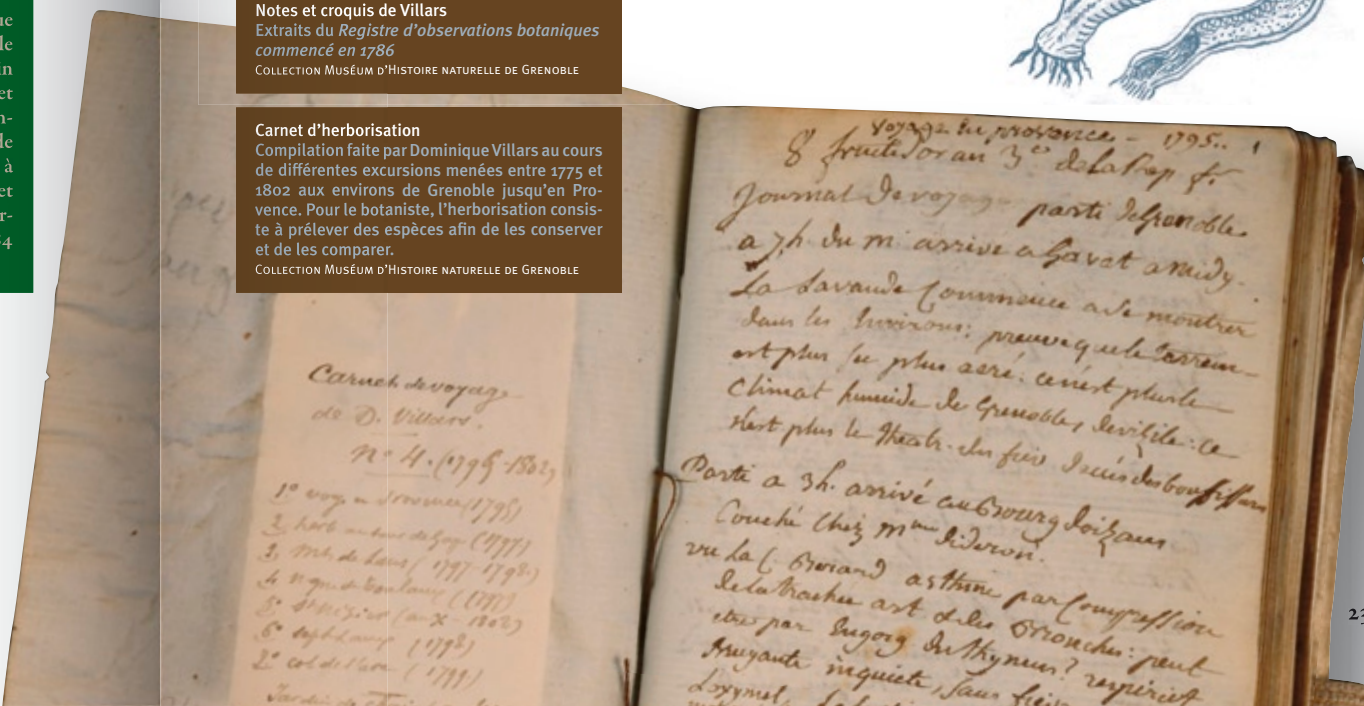 ue
le
in
et
n-
de
à
et
r-
54
Notes et croquis de Villars
Extraits du Registre d'observations botaniques
commencé en 1786
Collection Muséum d'Histoire naturelle de Grenoble
Carnet d'herborisation
Compilation faite par Dominique Villars au cours
de différentes excursions menées entre 1775 et
1802 aux environs de Grenoble jusqu'en Pro-
vence. Pour le botaniste, l'herborisation consis-
te à prélever des espèces afin de les conserver
et de les comparer.
Collection Muséum d'Histoire naturelle de Grenoble
Carnet de voyage
de D. Villars.
n° 4. (1795-1802)
1° voy. en Provence (1795)
(1797)
(1797-1798)
(1797)
1802)
6° (1798)
(1799)
Voyage en provence - 1795.. 1
8 fructidor an 3e de la Rep fr.
Journal de voyage parti de Grenoble
a 7h. du m. arrivé a Gavet a midy.
La Lavande Commence a se montrer
dans les Environs: preuve que le terrein
est plus sec plus aeré. ce n'est plus le
Climat humide de Grenoble, de vizile: ce
n'est plus le theatre des
Parti a 3h. arrivé au Bourg doizans
Couché chez mme dideron.
vu la C. asthme par Compression
de la trachée art & des Bronches: peut
etre par Engorg du thymus? respirat
bruyante inquiete, sans
Loxymel
23